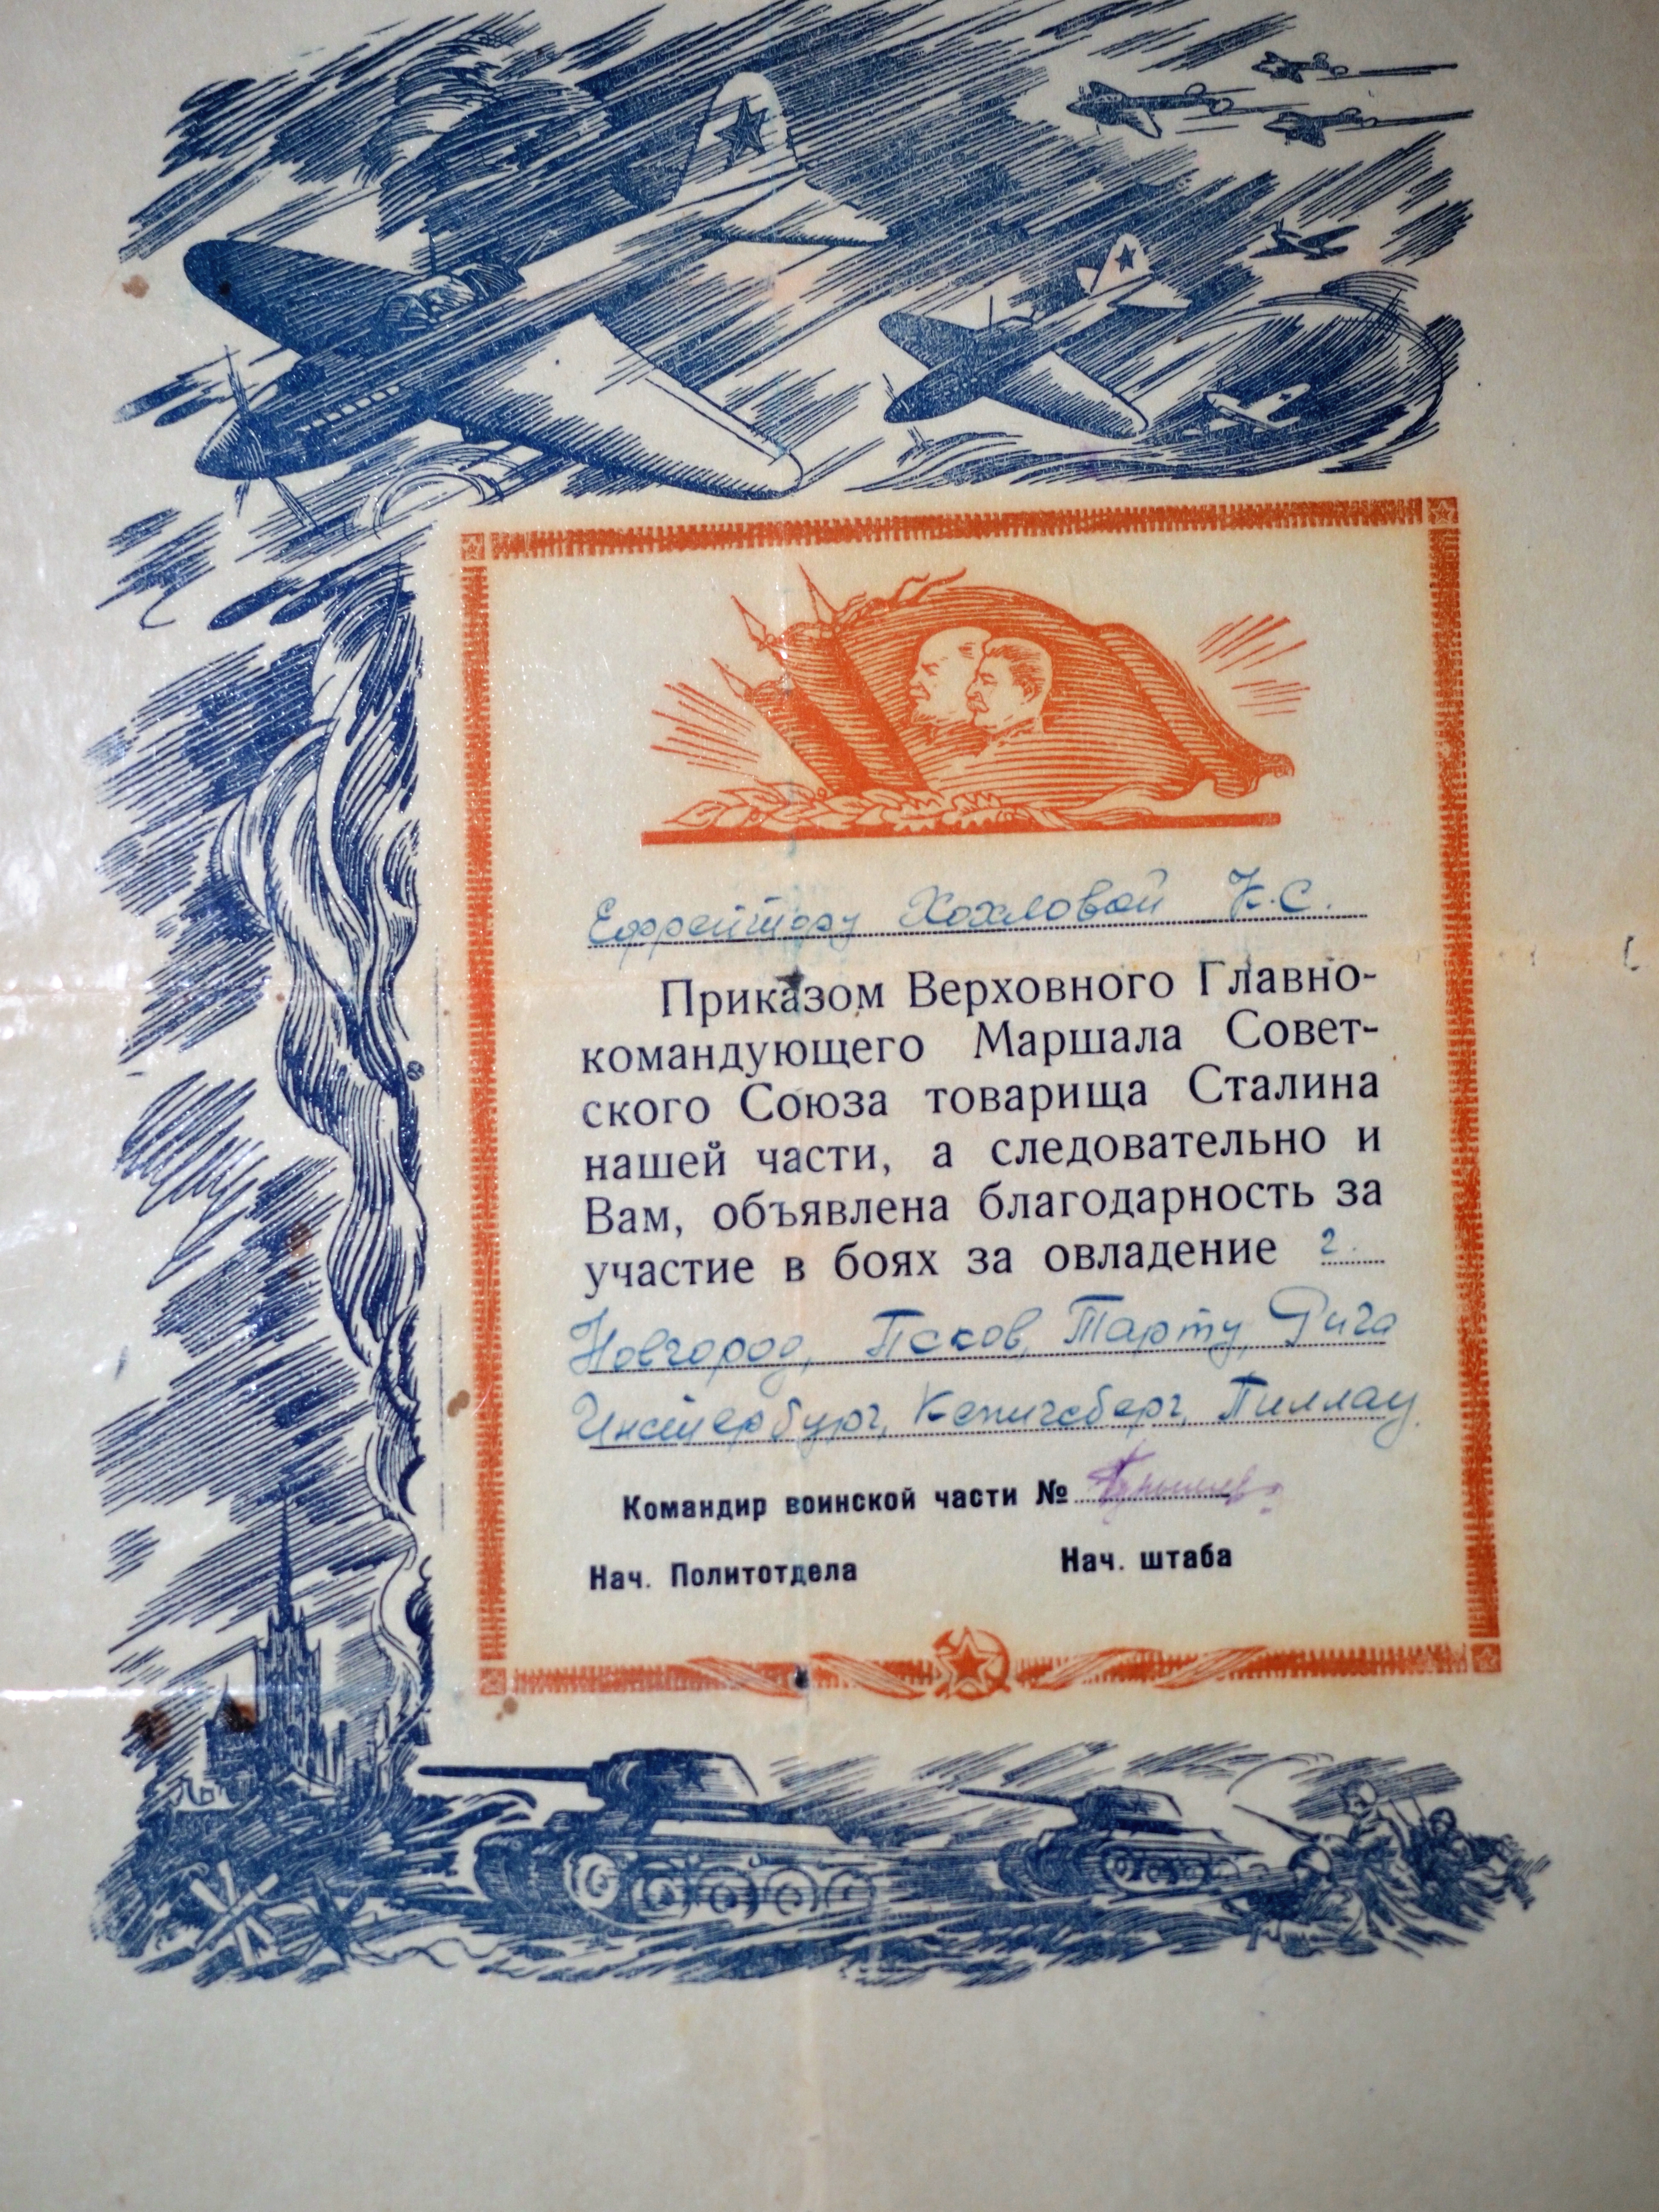 Ефрейтору Хохловой К.С.
Приказом Верховного Главно-
командующего Маршала Совет-
ского Союза товарища Сталина
нашей части, а следовательно и
Вам, объявлена благодарность за
участие в боях за овладение г.
Новгород, Псков, Тарту, Рига
Инстербург, Кенигсберг, Пиллау.
Командир воинской части №
Нач. Политотдела Нач. штаба